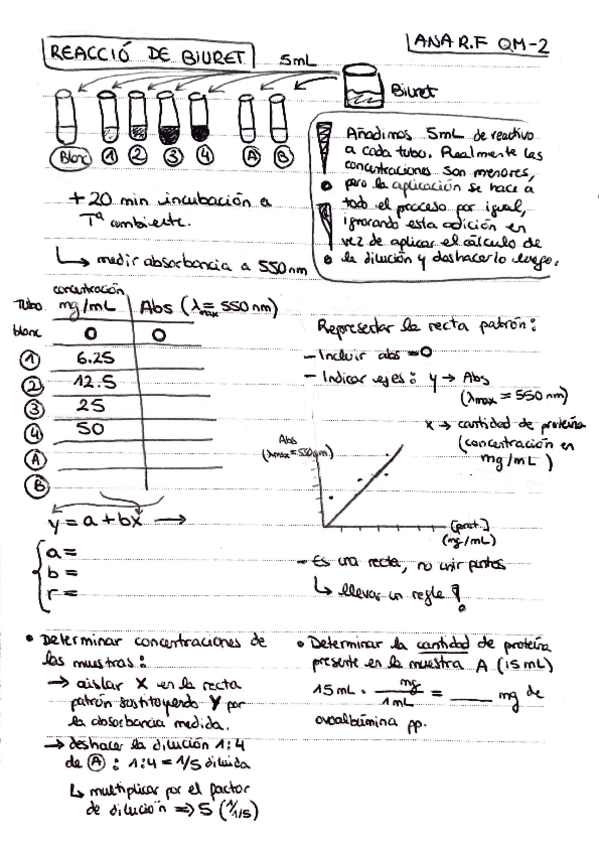 REACCIÓ DE BIURET
ANA R.F QM-2
5mL
Biuret
Blanc 1 2 3 4 A B
Añadimos 5mL de reactivo
a cada tubo. Realmente las
concentraciones son menores,
pero la aplicación se hace a
todo el proceso por igual,
ignorando esta adición en
vez de aplicar el cálculo de
la dilución y deshacerlo luego.
+ 20 min incubación a
Tª ambiente.
↳ medir absorbancia a 550nm
concentración
Tubo mg/mL Abs (λmax = 550 nm)
blanc 0 0
1 6.25
2 12.5
3 25
4 50
A
B
y = a + bx →
a =
b =
r =
Representar la recta patrón:
- Incluir abs = 0
- Indicar ejes: y → Abs
(λmax = 550 nm)
x → cantidad de proteína
(concentración en
mg/mL)
Abs
(λmax = 550nm)
[prot.]
(mg/mL)
- Es una recta, no unir puntos
↳ llevar un regle!
• Determinar concentraciones de
las mustras:
→ aislar X en la recta
patrón sustituyendo Y por
la absorbancia medida.
→ deshacer la dilución 1:4
de A : 1:4 = 1/5 diluida
↳ multiplicar por el factor
de dilución => 5 (1/1/5)
• Determinar la cantidad de proteína
presente en la muestra A (15 mL)
15 mL · mg/1 mL = ___ mg de
ovoalbúmina pp.